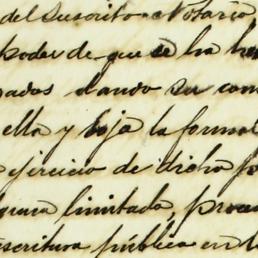 del Suscrito Notario
poder de que se ha
dando su con
ella y bajo la formal
ejercicio de dicho po
forma limitada, procu
escritura pública en l